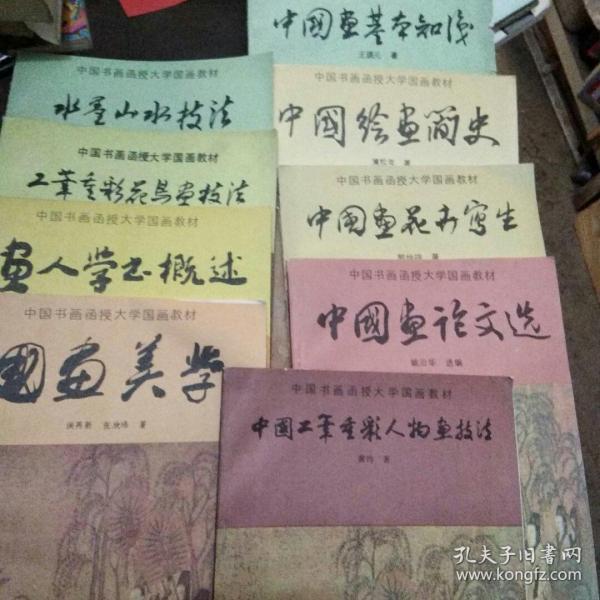 中国画基本知识
王颂元 著
中国书画函授大学国画教材
水墨山水技法
中国书画函授大学国画教材
工笔重彩花鸟画技法
中国书画函授大学国画教材
画人学书概述
中国书画函授大学国画教材
国画美学
洪再新 张欣玮 著
中国书画函授大学国画教材
中国绘画简史
著
中国书画函授大学国画教材
中国画花卉写生
著
中国书画函授大学国画教材
中國画论文选
选编
中国书画函授大学国画教材
中国工笔重彩人物画技法
黄均 著
孔夫子旧书网
www.kongfz.com